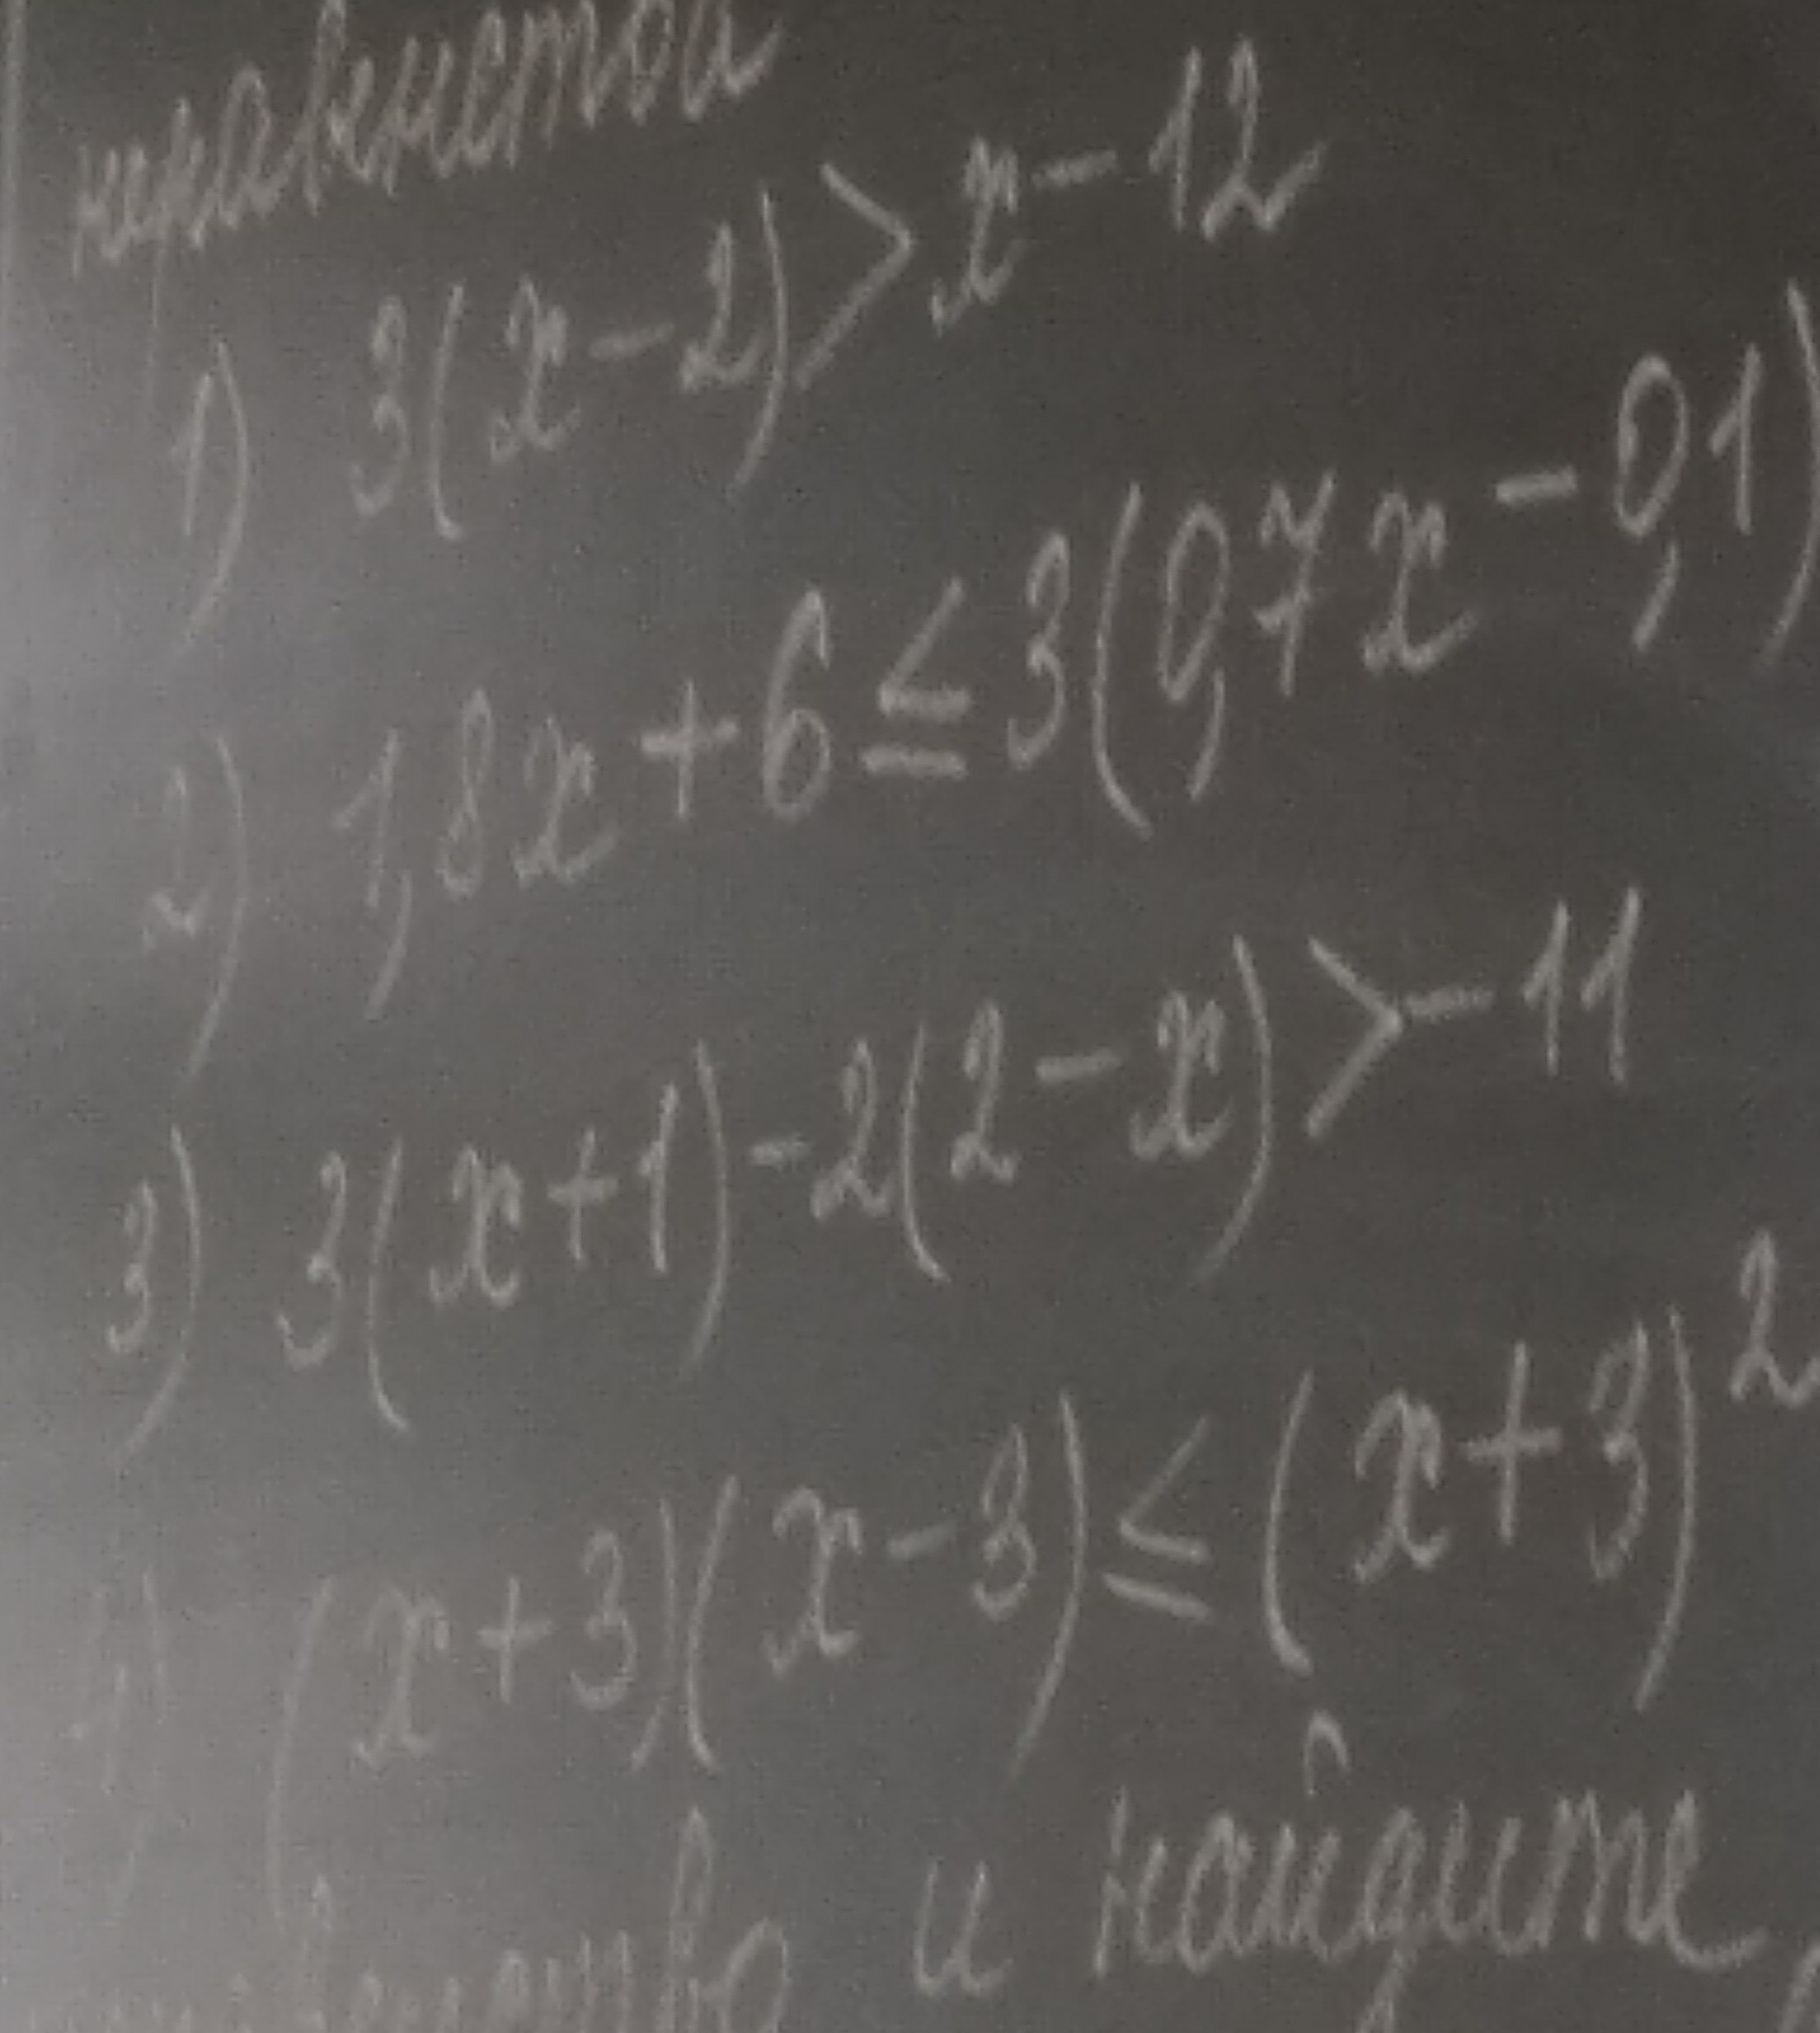 неравенства
1) 3(x-2)>x-12
2) 1,8x+6≤3(0,7x-0,1)
3) 3(x+1)-2(2-x)>-11
4) (x+3)(x-3)≤(x+3)²
и найдите